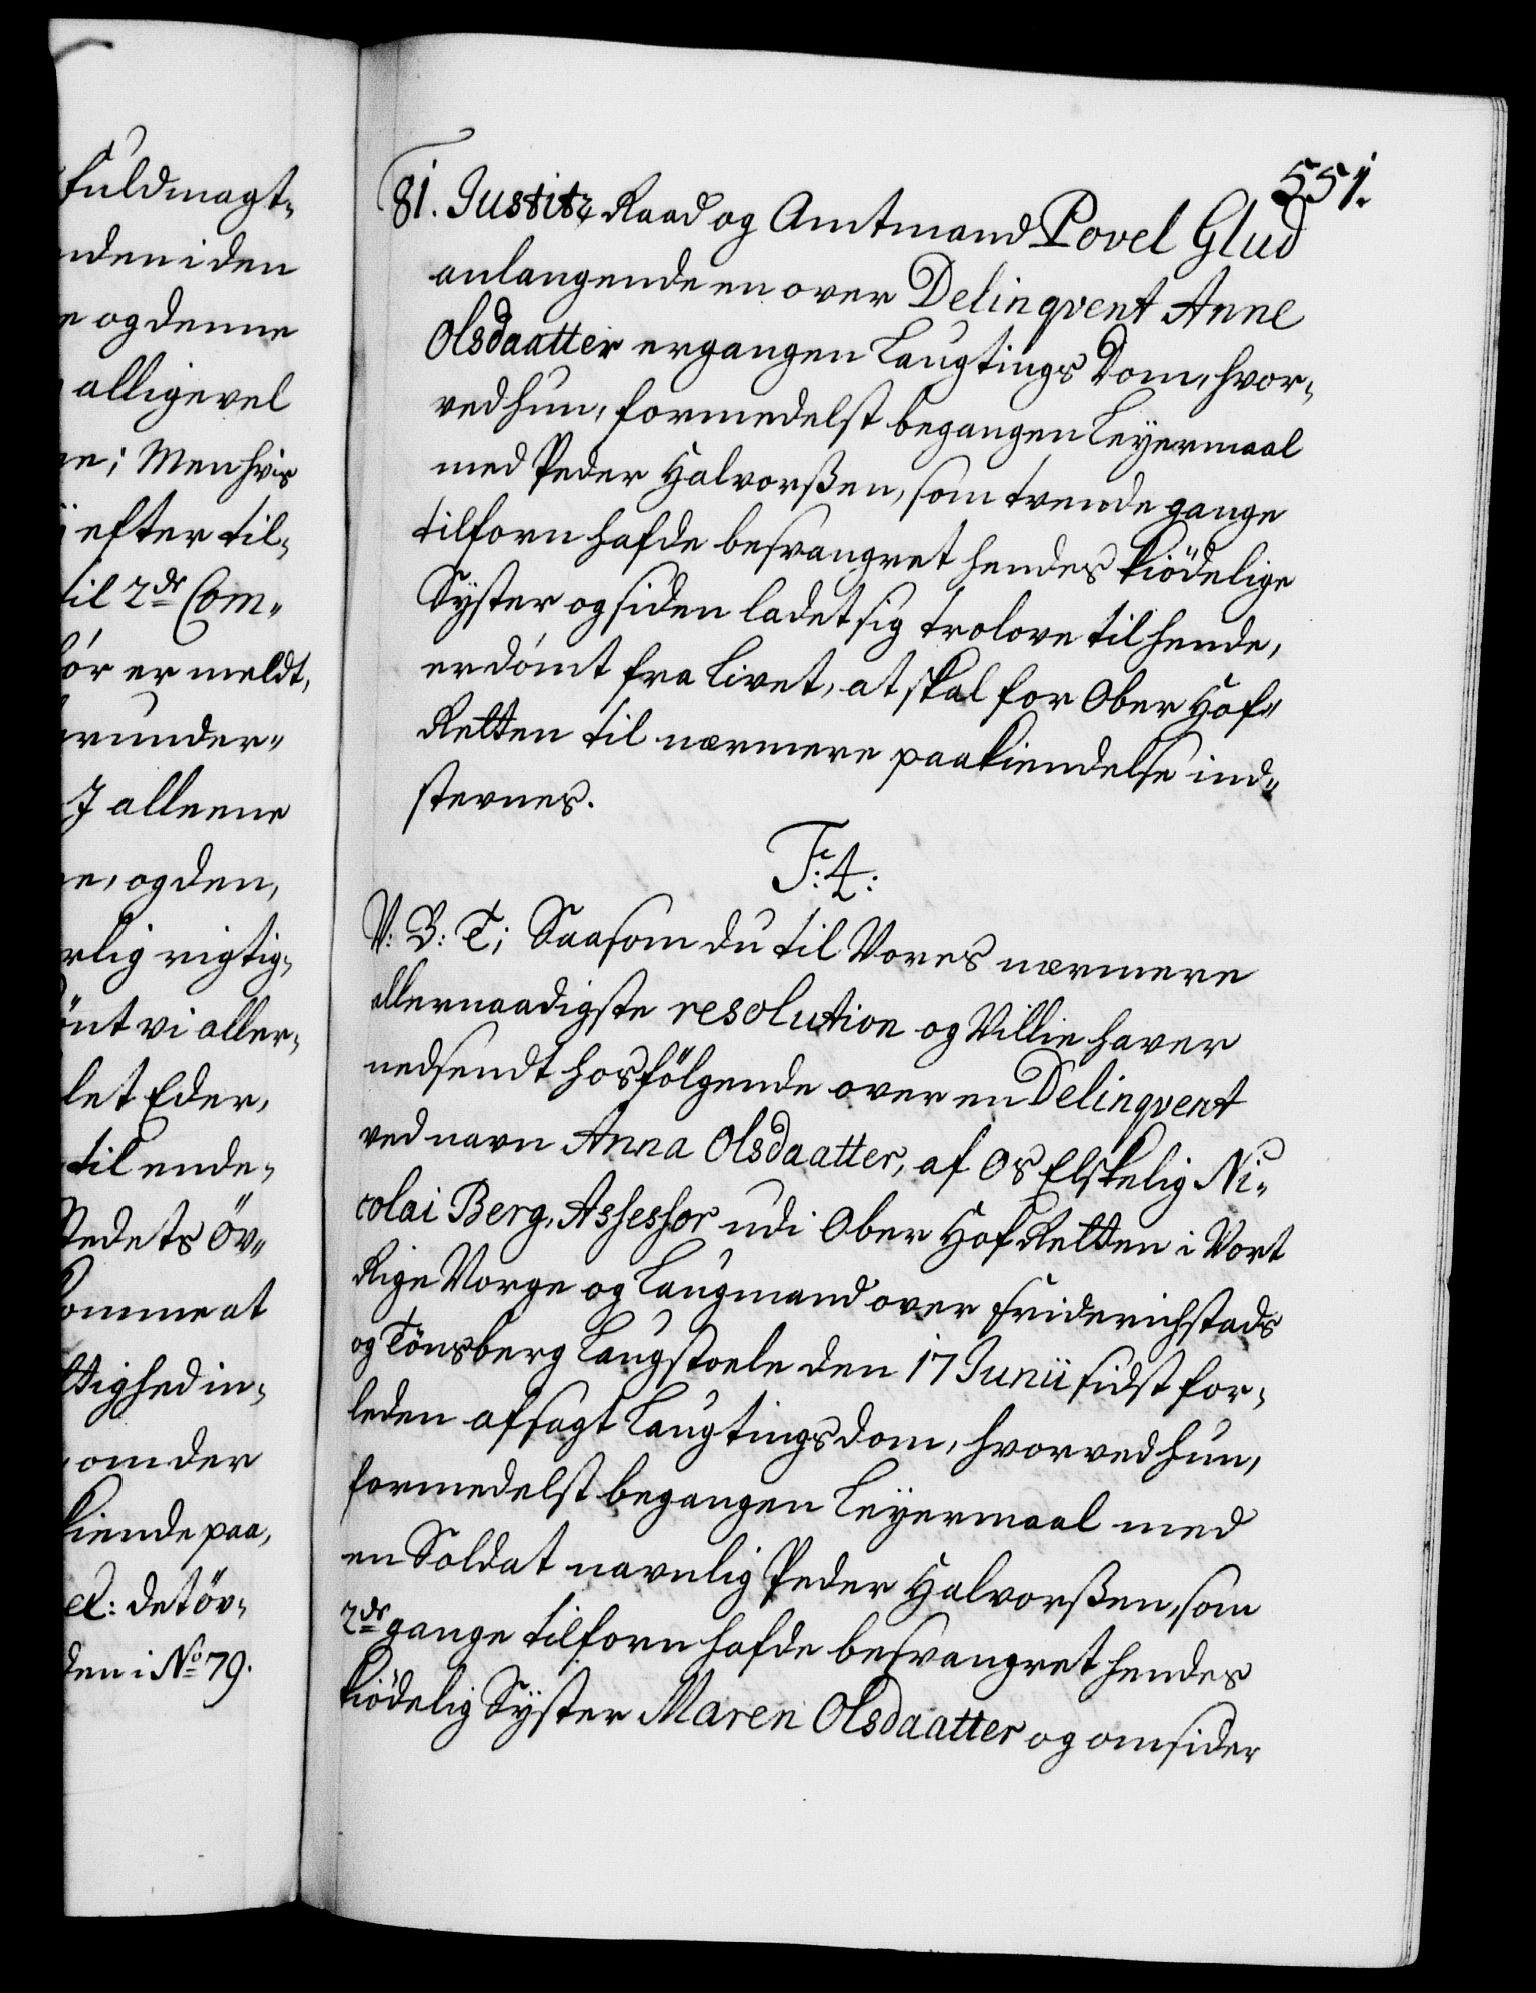 fuldmagt-
nden i den
e og denne
alligevel
ne; Men hvis
efter til-
til 2de Com-
för er meldt,
runder-
J alleene
e, og den,
rlig rigtig-
önt vi aller-
let Eder,
til ende-
Stedets öv-
komme at
ttighed in-
om der
kiende paa,
et: det öv-
den i No 79.
551.
81. Justitz Raad og Amtmand Povel Glud
anlangende en over Delinqvent Anne
Olsdaatter ergangen Laugtings Dom, hvor-
ved hun, formedelst begangen Leyermaal
med Peder Halvorßen, som tvende gange
tilforn hafde besvangret hendes kiödelige
Syster og siden ladet sig trolove til hende,
er dömt fra Livet, at skal for Ober Hof-
Retten til nærmere paakiendelse ind-
stevnes.
F: 4:
V: G: T; Saasom du til Vores nærmere
allernaadigste resolution og Villie haver
nedsendt hosfölgende over en Delinqvent
ved navn Anna Olsdaatter, af Os Elskelig Ni-
colai Berg, Assessor udi Ober Hof Retten i Vort
Rige Norge og Laugmand over Friderichstads
og Tönsberg Laugstoele den 17 Junii sidst for-
leden afsagt Laugtingsdom, hvorved hun,
formedelst begangen Leyermaal med
en Soldat navnlig Peder Halvorßen, som
2de gange tilforn hafde besvangret hendes
kiödelig Syster Maren Olsdaatter og omsider